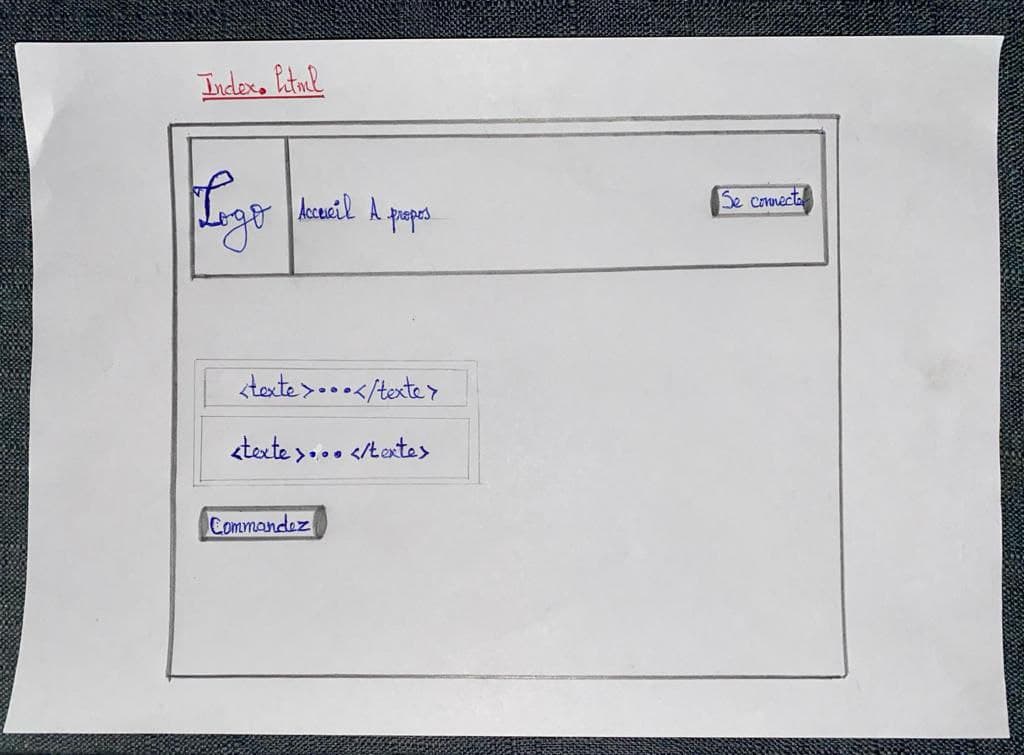 Index.html
Logo
Accueil A propos
Se connecter
<texte>...</texte>
<texte>...</texte>
Commandez